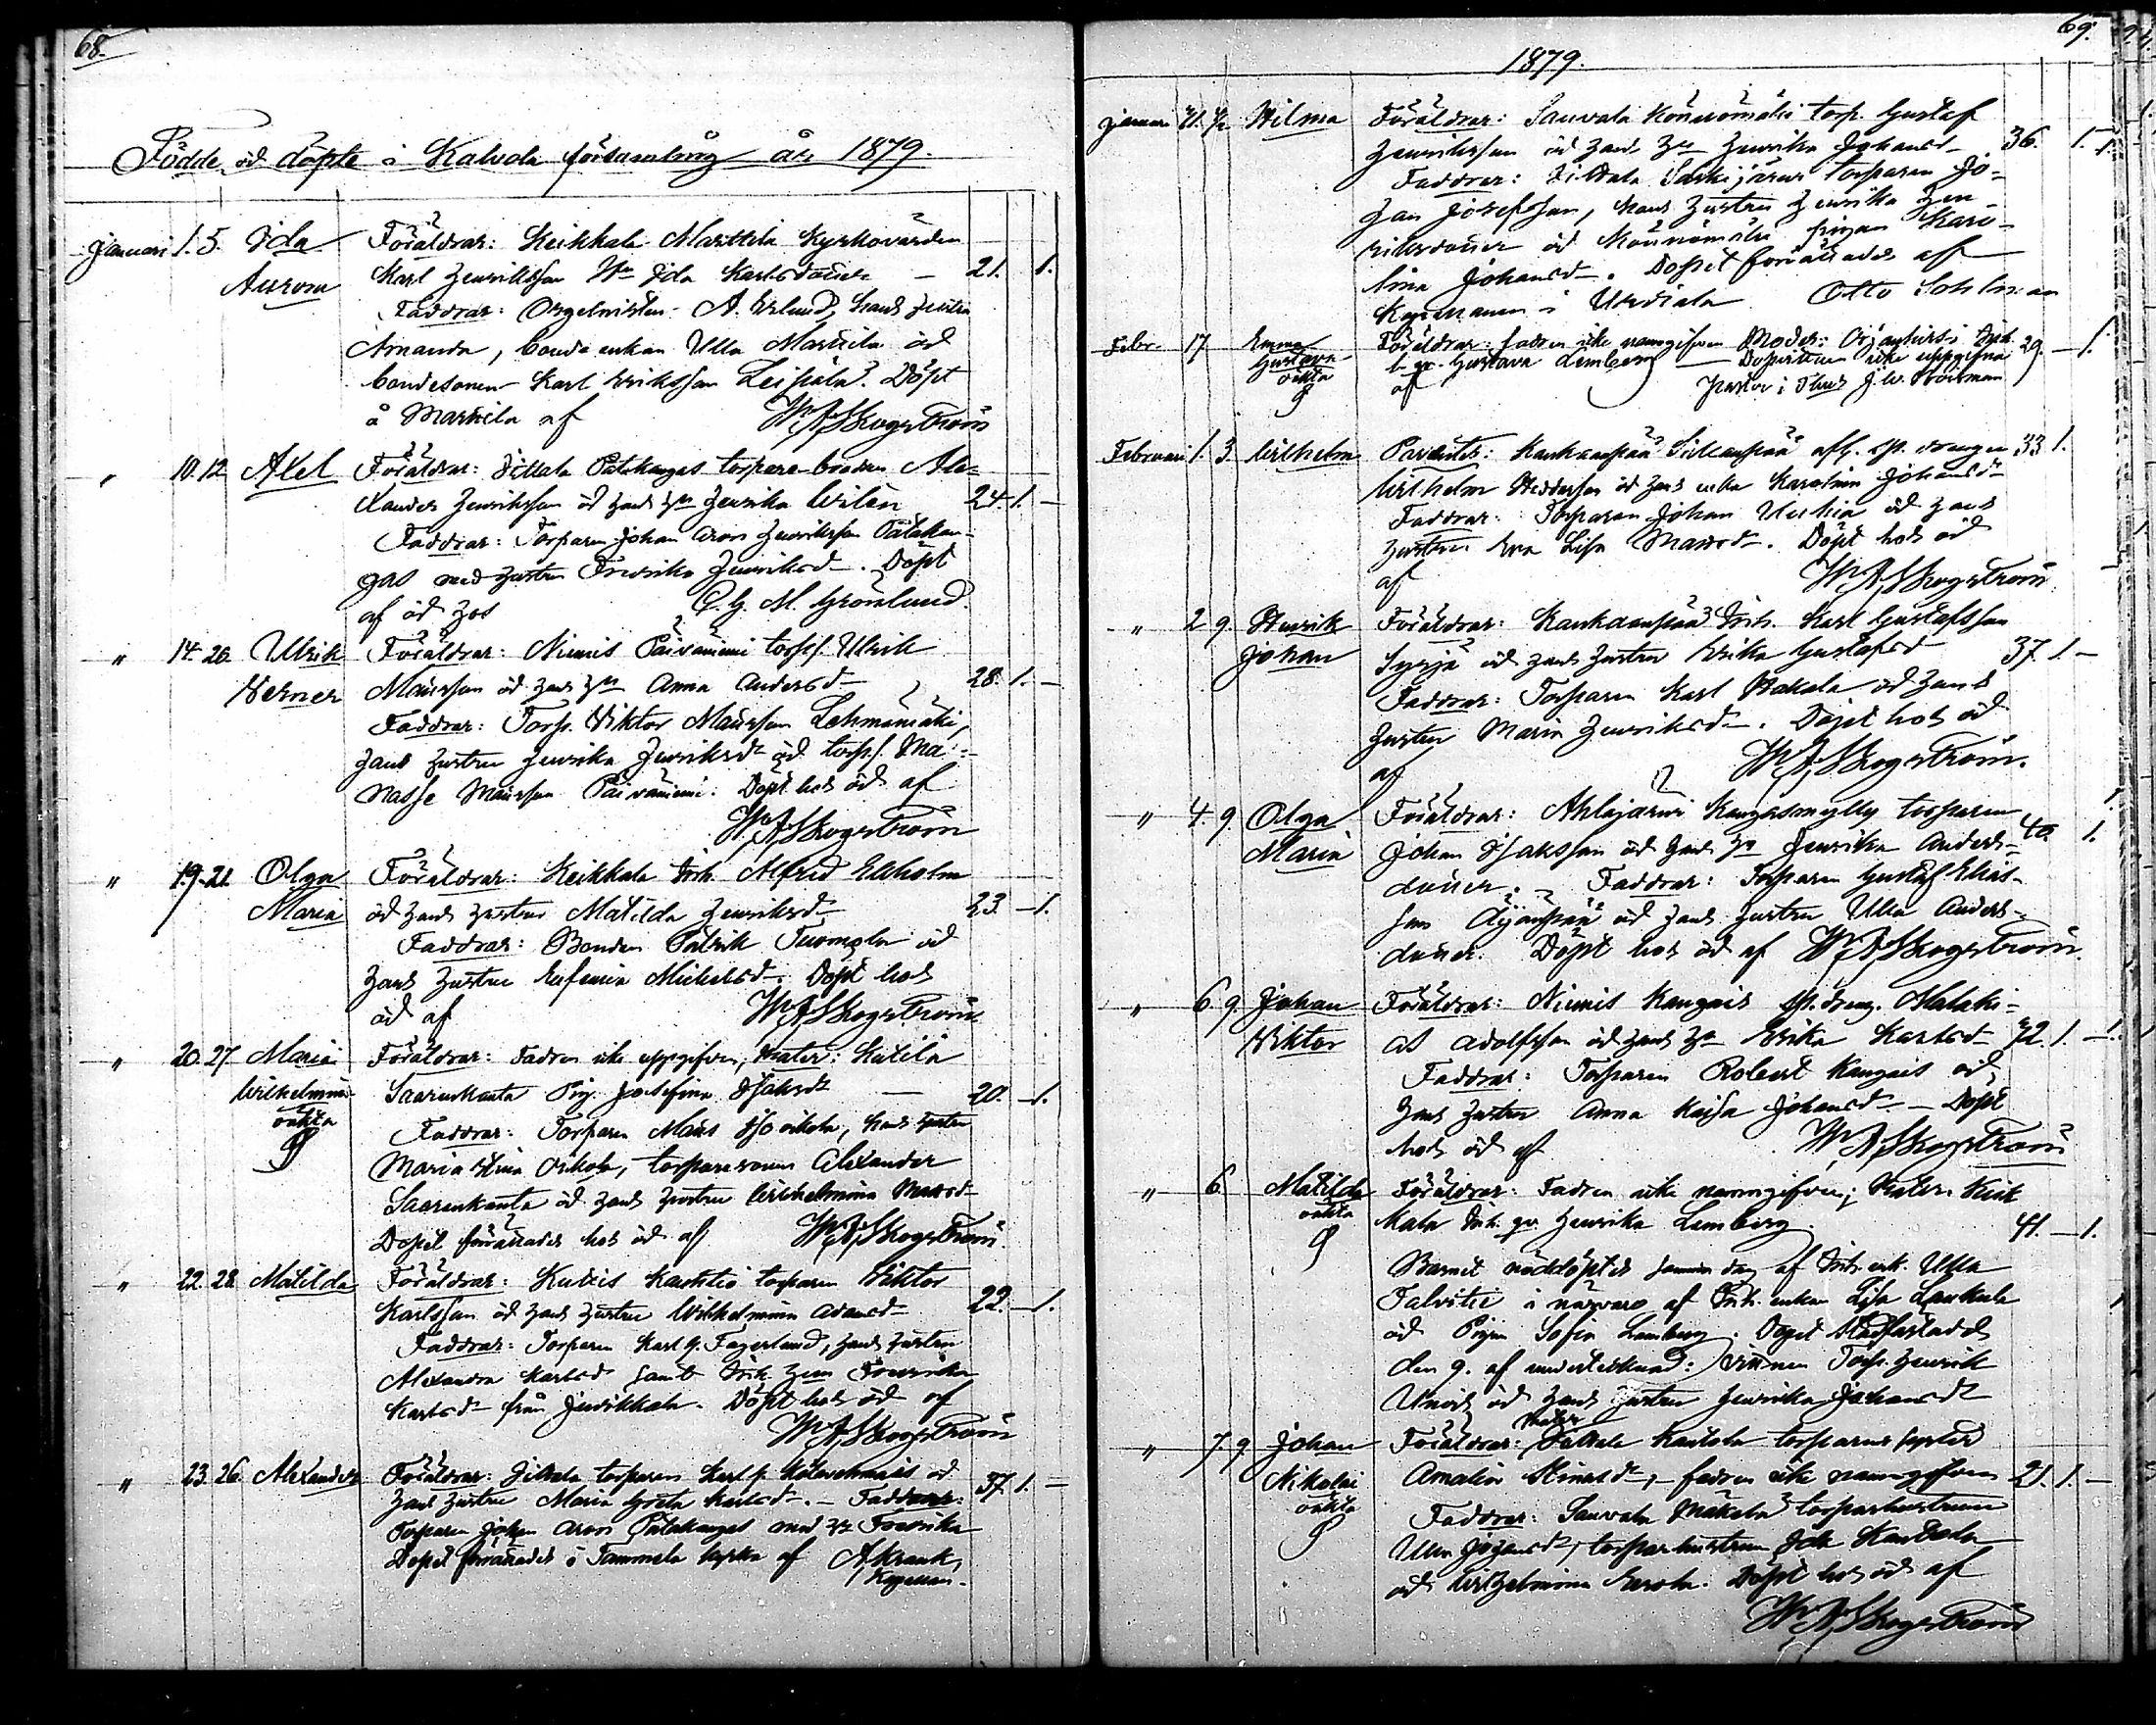 68.
Födde och döpte i Kalvola församling år 1879.
Januari 1. 5. Ida Föräldrar: Keikkala Marttila Kyrkovärden
Aurora Karl Henriksson Hu Ida Karlsdotter — 21. 1.
Faddrar: Orgelnisten A. Erlund, hans hustru
Amanda, bonde enkan Ulla Marttila och
bondesonen Karl Eriksson Leipälä. Döpt
å Marttila af W. A. Skogström
" 10. 12. Axel Föräldrar: Jittala Pätakangas torpare brodren Ale-
xander Henriksson och hans hu Henrika Wilén 24. 1. —
Faddrar: Torparen Johan Aron Henriksson Pätakan-
gas med hustru Fredrika Henriksd. Döpt
af och hos C. G. M. Grönlund.
" 14. 20. Ulrik Föräldrar: Niemis Päiväniemi torp. Ulrik
Verner Mårtsson och hans hu Anna Andersd 28. 1. —
Faddrar: Torp. Viktor Mårtsson Lehmämäki,
hans hustru Henrika Henriksd och torp. Ma-
nasse Mårtsson Päiväniemi. Döpt hos och af
W. A. Skogström
" 19. 21. Olga Föräldrar: Keikkala Inh. Alfred Ekholm
Maria och hans hustru Matilda Henriksd 23. — 1.
Faddrar: Bonden Patrik Tuomola och
hans hustru Eufemia Michelsd. Döpt hos
och af W. A. Skogström
" 20. 27. Maria Föräldrar: Fadren icke uppgifven, Mater: Kutila
Wilhelmina Saarenkanta Pig. Josefina Isaksd — 20. — 1.
oäkta Faddrar: Torparen Mats Orikola, hans hustru
Maria Stina Orikola, torparesonen Alexander
Saarenkanta och hans hustru Wilhelmina Matsd
Dopet förrättades hos och af W. A. Skogström
" 22. 28. Matilda Föräldrar: Kutis Kanktio torparen Viktor
Karlsson och hans hustru Wilhelmina Adamsd 22. — 1.
Faddrar: Torparen Karl G. Fagerlund, hans hustru
Alexandra Karlsd samt Inh. Fredrika
Karlsd från Henrikkala. Döpt hos och af
W. A. Skogström
" 23. 26. Alexander Föräldrar: Jittala torparen Karl och
hans hustru Maria Greta Karlsd. — Faddrar: 37. 1. —
Torparen Johan Aron Pätakangas med hu Fredrika
Dopet förrättades i Tammela kyrka af A Krank,
Kapellan.
69.
1879.
Januari 31. Hilma Föräldrar: Sauvala Könnömäki torp. Gustaf
Henriksson och hans hu Henrika Johansd 36. 1. 1.
Faddrar: Jittala torparen Jo-
han Josefsson, hans hustru Henrika Hen-
riksdotter och Könnömäki pigan Karo-
lina Johansd. Dopet förrättades af
Kapellanen i Urdiala Otto Sohlman
Febr. 17 Emma Föräldrar: fadren icke namngifven Moder:
Gustava Gustava Lemberg — Dopvittnen icke uppgifna 29. — 1.
oäkta af Pastor i
Februari 1. 3. Wilhelm Parentes: Kankaanpää Sillanpää afl. sp. drengen 33. 1.
Wilhelm och hans enka Karolina Johansd
Faddrar: Torparen Johan och hans
hustru Eva Lisa Matsd. Döpt hos och
af W. A. Skogström
" 2. 9. Henrik Föräldrar: Kankaanpää Inh. Karl Gustafsson
Johan Syrjä och hans hustru Erika Gustafsd 37. 1. —
Faddrar: Torparen Karl Hakala och hans
hustru Maria Henriksd. Döpt hos och
af W. A. Skogström.
" 4. 9. Olga Föräldrar: Ahlajärvi Kangasmylly torparen
Maria Johan Isaksson och hans hu Henrika Anders- 40. 1.
dotter. — Faddrar: Torparen Gustaf Elias-
son Äijänpää och hans hustru Ulla Anders-
dotter. Döpt hos och af W. A. Skogström.
" 6. 9. Johan Föräldrar: Niemis Kangais sp. dreng. Malaki-
Viktor as Adolfsson och hans hu Erika Karlsd 42. 1. —
Faddrar: Torparen Robert Kangais och
hans hustru Anna Kajsa Johansd — Döpt
hos och af W. A. Skogström
" 6. Matilda Föräldrar: Fadren icke namngifven; Mater. Keik
oäkta kala Inh. qv. Henrika Lemberg. 41. — 1.
Barnet nöddöptes samma dag af Inh. enk. Ulla
Talvitie i närvaro af Inh. enkan Lisa Laukula
och Pigan Sofia Lemberg. Dopet stadfästades
den 9. af undertecknad: Vittnen Torp. Henrik
och hans hustru Henrika Johansd
" 7. 9. Johan Föräldrar: Mater Jittala Kaitola torparens syster
Nikolai Amalia Stinasd, — fadren icke namngifven 21. 1. —
oäkta Faddrar: Sauvala Mäkelä torparhustrun
Ulla Johansd, torparhustrun Ida
och Wilhelmina Eerola. Döpt hos och af
W. A. Skogström